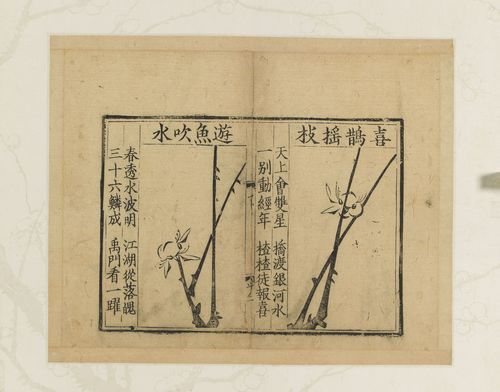 喜鵲搖枝
天上會雙星 橋渡銀河水
一别動經年 楂楂徒報喜
遊魚吹水
春透水波明 江湖從落魄
三十六鱗成 禹門看一躍